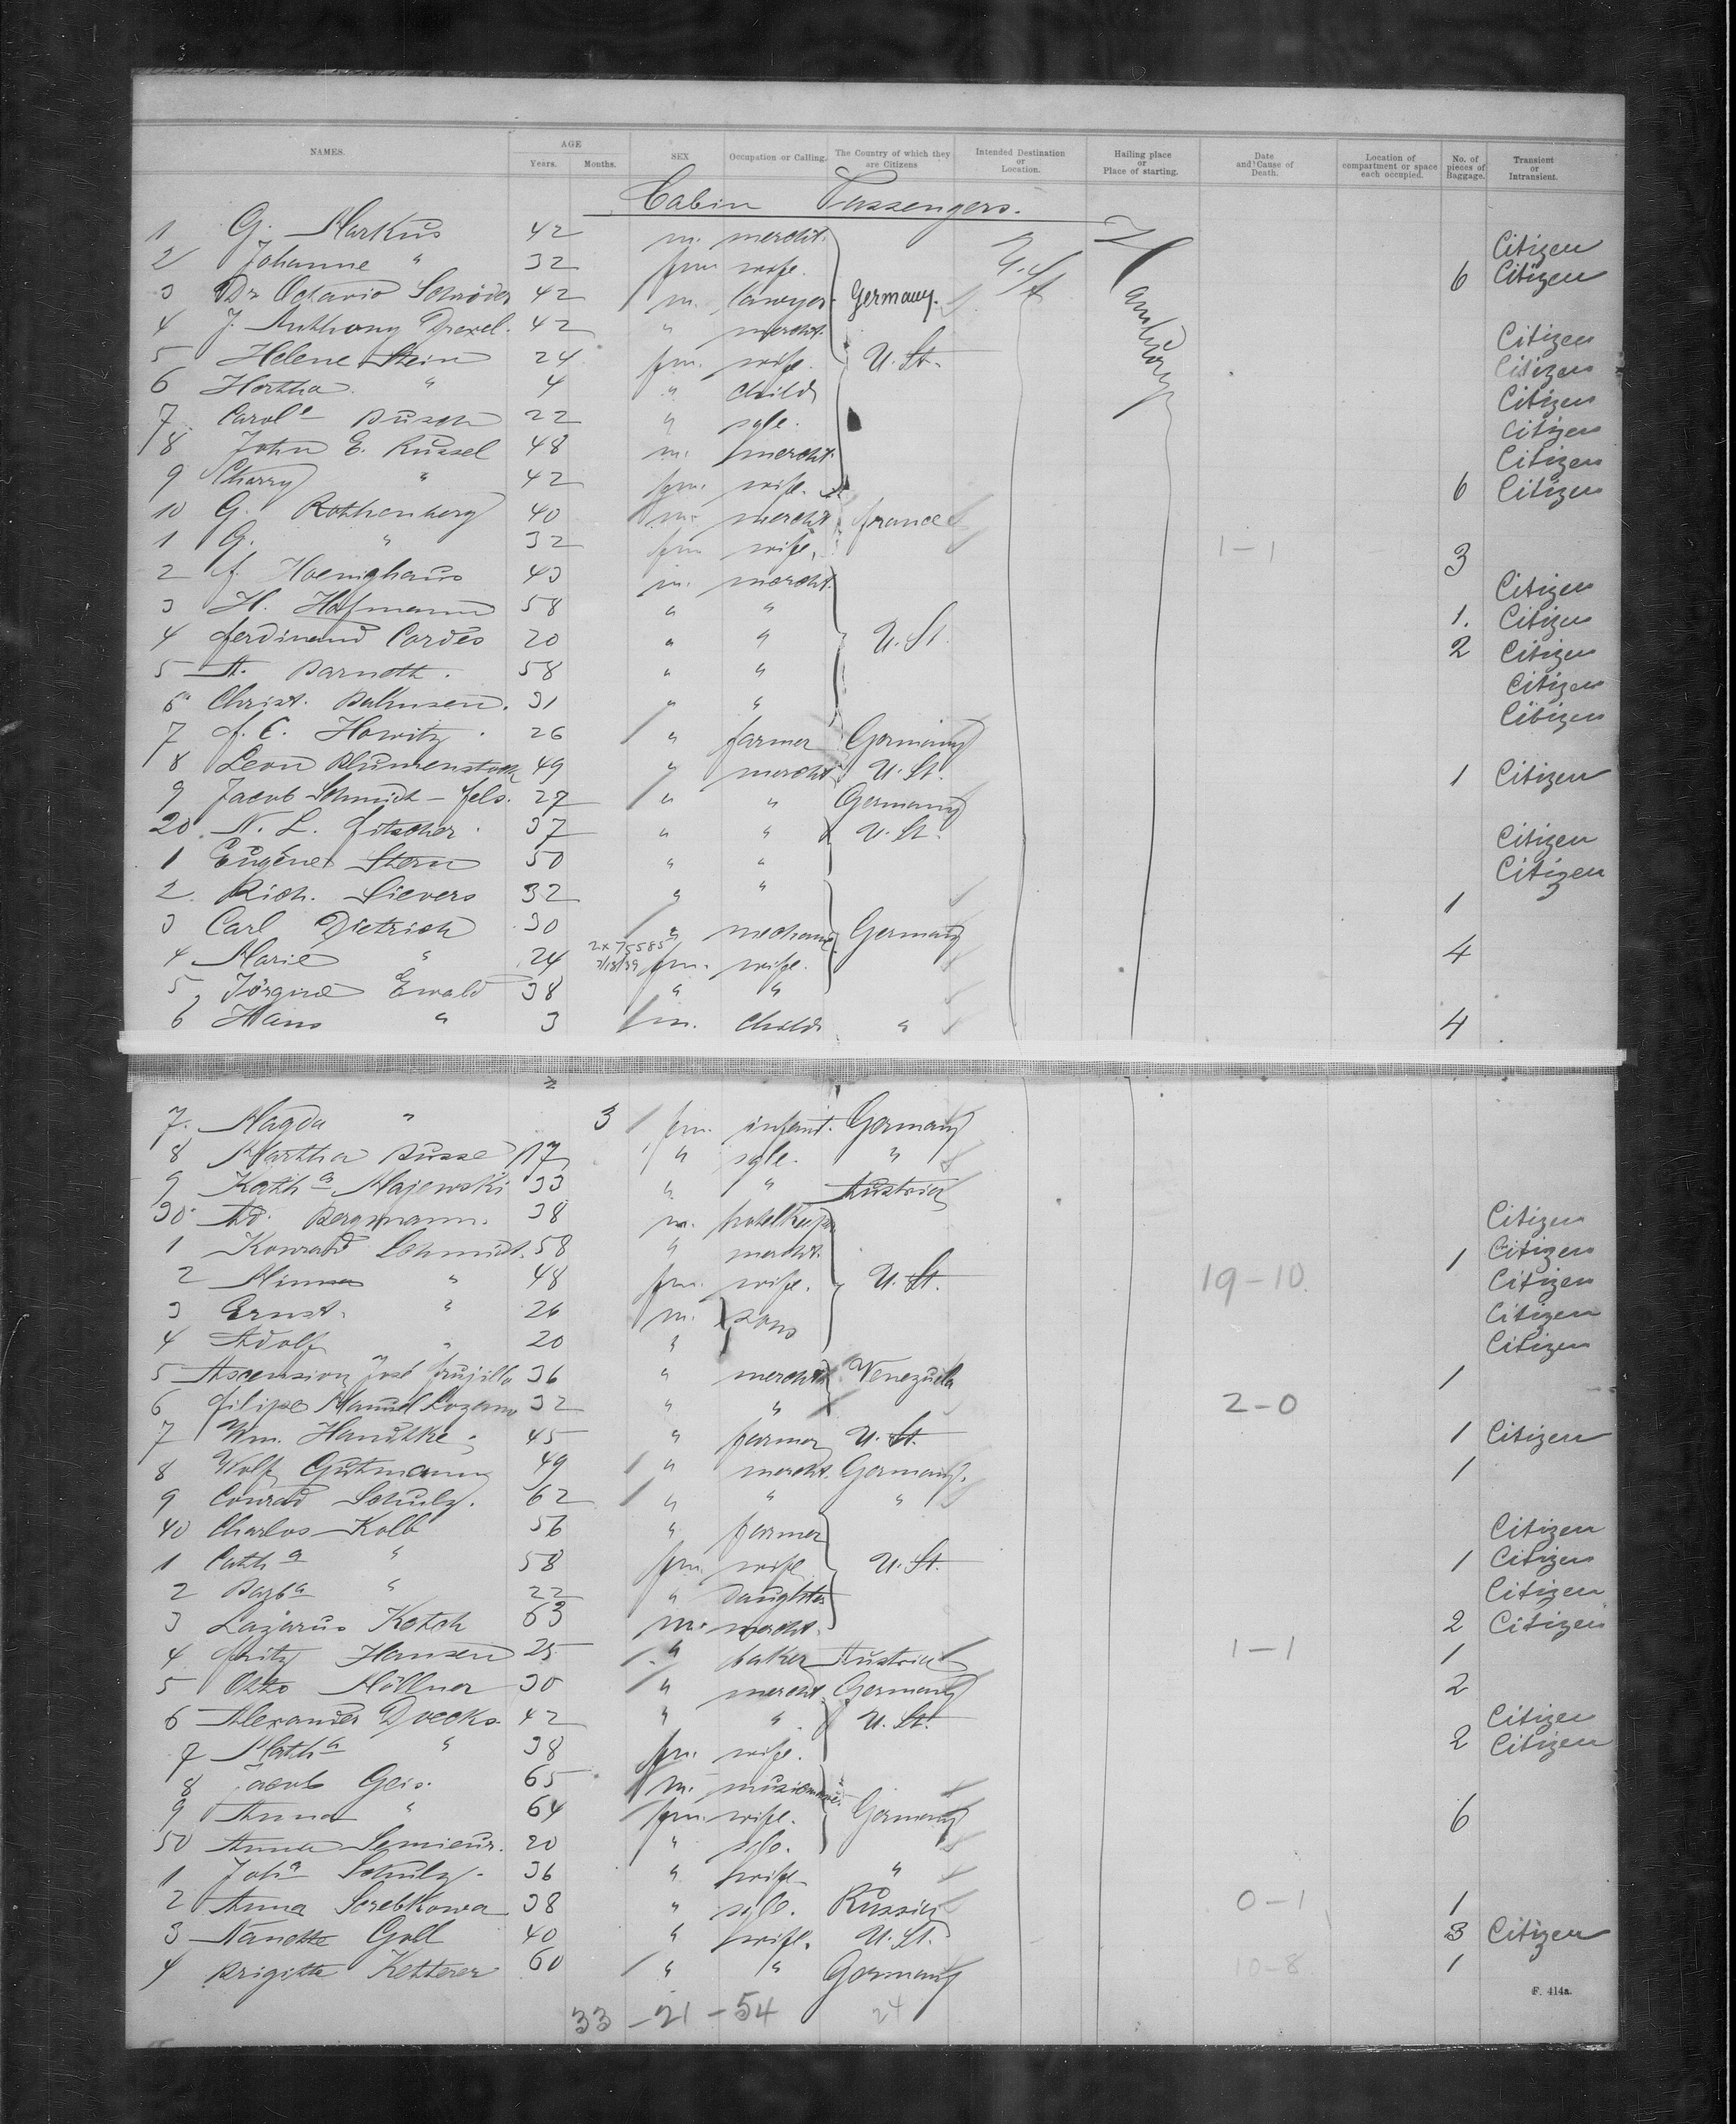 NAMES. AGE Years. Months. SEX Occupation or Calling. The Country of which they are Citizens Intended Destination or Location. Hailing place or Place of starting. Date and Cause of Death. Location of compartment or space each occupied. No. of pieces of Baggage. Transient or Intransient.
Cabin Passengers.
1 G. Markus 42 m. mercht. Citizen
2 Johanne " 32 fm wife. 6 Citizen
3 Dr Octavio Schröder 42 m. lawyer Germany.
4 J. Anthony Drexel. 42 " mercht. Citizen
5 Helene Stein 24 fm. wife. U. St. Citizen
6 Hertha " 4 " child Citizen
7 Carola Busch 22 " sgle. Citizen
8 John E. Russel 48 m. mercht. Citizen
9 Charry " 42 fm. wife. 6 Citizen
10 G. Rothenberg 40 m. mercht france
1 G. " 32 fm wife. 1-1 3
2 f. Hoeninghaus 43 m. mercht. Citizen
3 H. Hofmann 58 " " 1. Citizen
4 ferdinand Cordes 20 " " U. St. 2 Citizen
5 A. Barnoth. 58 " " Citizen
6 Christ. Bahnsen. 31 " " Citizen
7 f. C. Horwitz. 26 " farmer Germany
8 Leon Blumenstock 49 " mercht U. St. 1 Citizen
9 Jacob Schmidt-fels. 27 " " Germany
20 N. L. fitscher. 37 " " U. St. Citizen
1 Eugene Stern 50 " " Citizen
2 Rich. Sievers 32 " " 1
3 Carl Dietrich 30 " mechanic Germany
4 Marie " 24 2x75585 fm. wife. 4
5 Jörgine Ewald 38 " "
6 Hans " 3 m. child " 4
7. Magda " 3 fm. infant. Germany
8 Martha Busse 17 " sgle. "
9 Katha Majewski 33 " " Austria
30 Ad. Bergmann. 38 m. hotelkeeper Citizen
1 Konrad Schmidt. 58 " mercht. 1 Citizen
2 Minna " 48 fm. wife. U. St. 19-10. Citizen
3 Ernst. " 26 m. sons Citizen
4 Adolf " 20 " Citizen
5 Ascension José frujillo 36 " mercht Venezuela 1
6 filipe Manuel Lozano 32 " " 2-0
7 Wm. Hanutke 45 " farmer U. St. 1 Citizen
8 Wolf Gutmann 49 " mercht. Germany. 1
9 Conrad Schulz. 62 " " "
40 Charles Kolb 56 " farmer Citizen
1 Catha " 58 fm. wife U. St. 1 Citizen
2 Barba " 22 " daughter Citizen
3 Lazarus Kotch 63 m. mercht. 2 Citizen
4 fritz Hansen 25 " baker Austria 1-1 1
5 Otto Möllner 30 " mercht. Germany 2
6 Alexander Doecks. 42 " " U. St. Citizen
7 Matha " 38 fm. wife. 2 Citizen
8 Jacob Geis. 65 m. musician
9 Anna " 64 fm. wife. Germany 6
50 Anna 20 " sgle.
1 Joha Schulz. 36 " wife "
2 Anna Serebkowa 38 " sgle. Russia 0-1 1
3 Nanette Goll 40 " wife. U. St. 3 Citizen
4 Brigitta Ketterer 60 " " Germany 10-8 1
33 - 21 - 54 24
F. 414a.
U. St
Hamburg